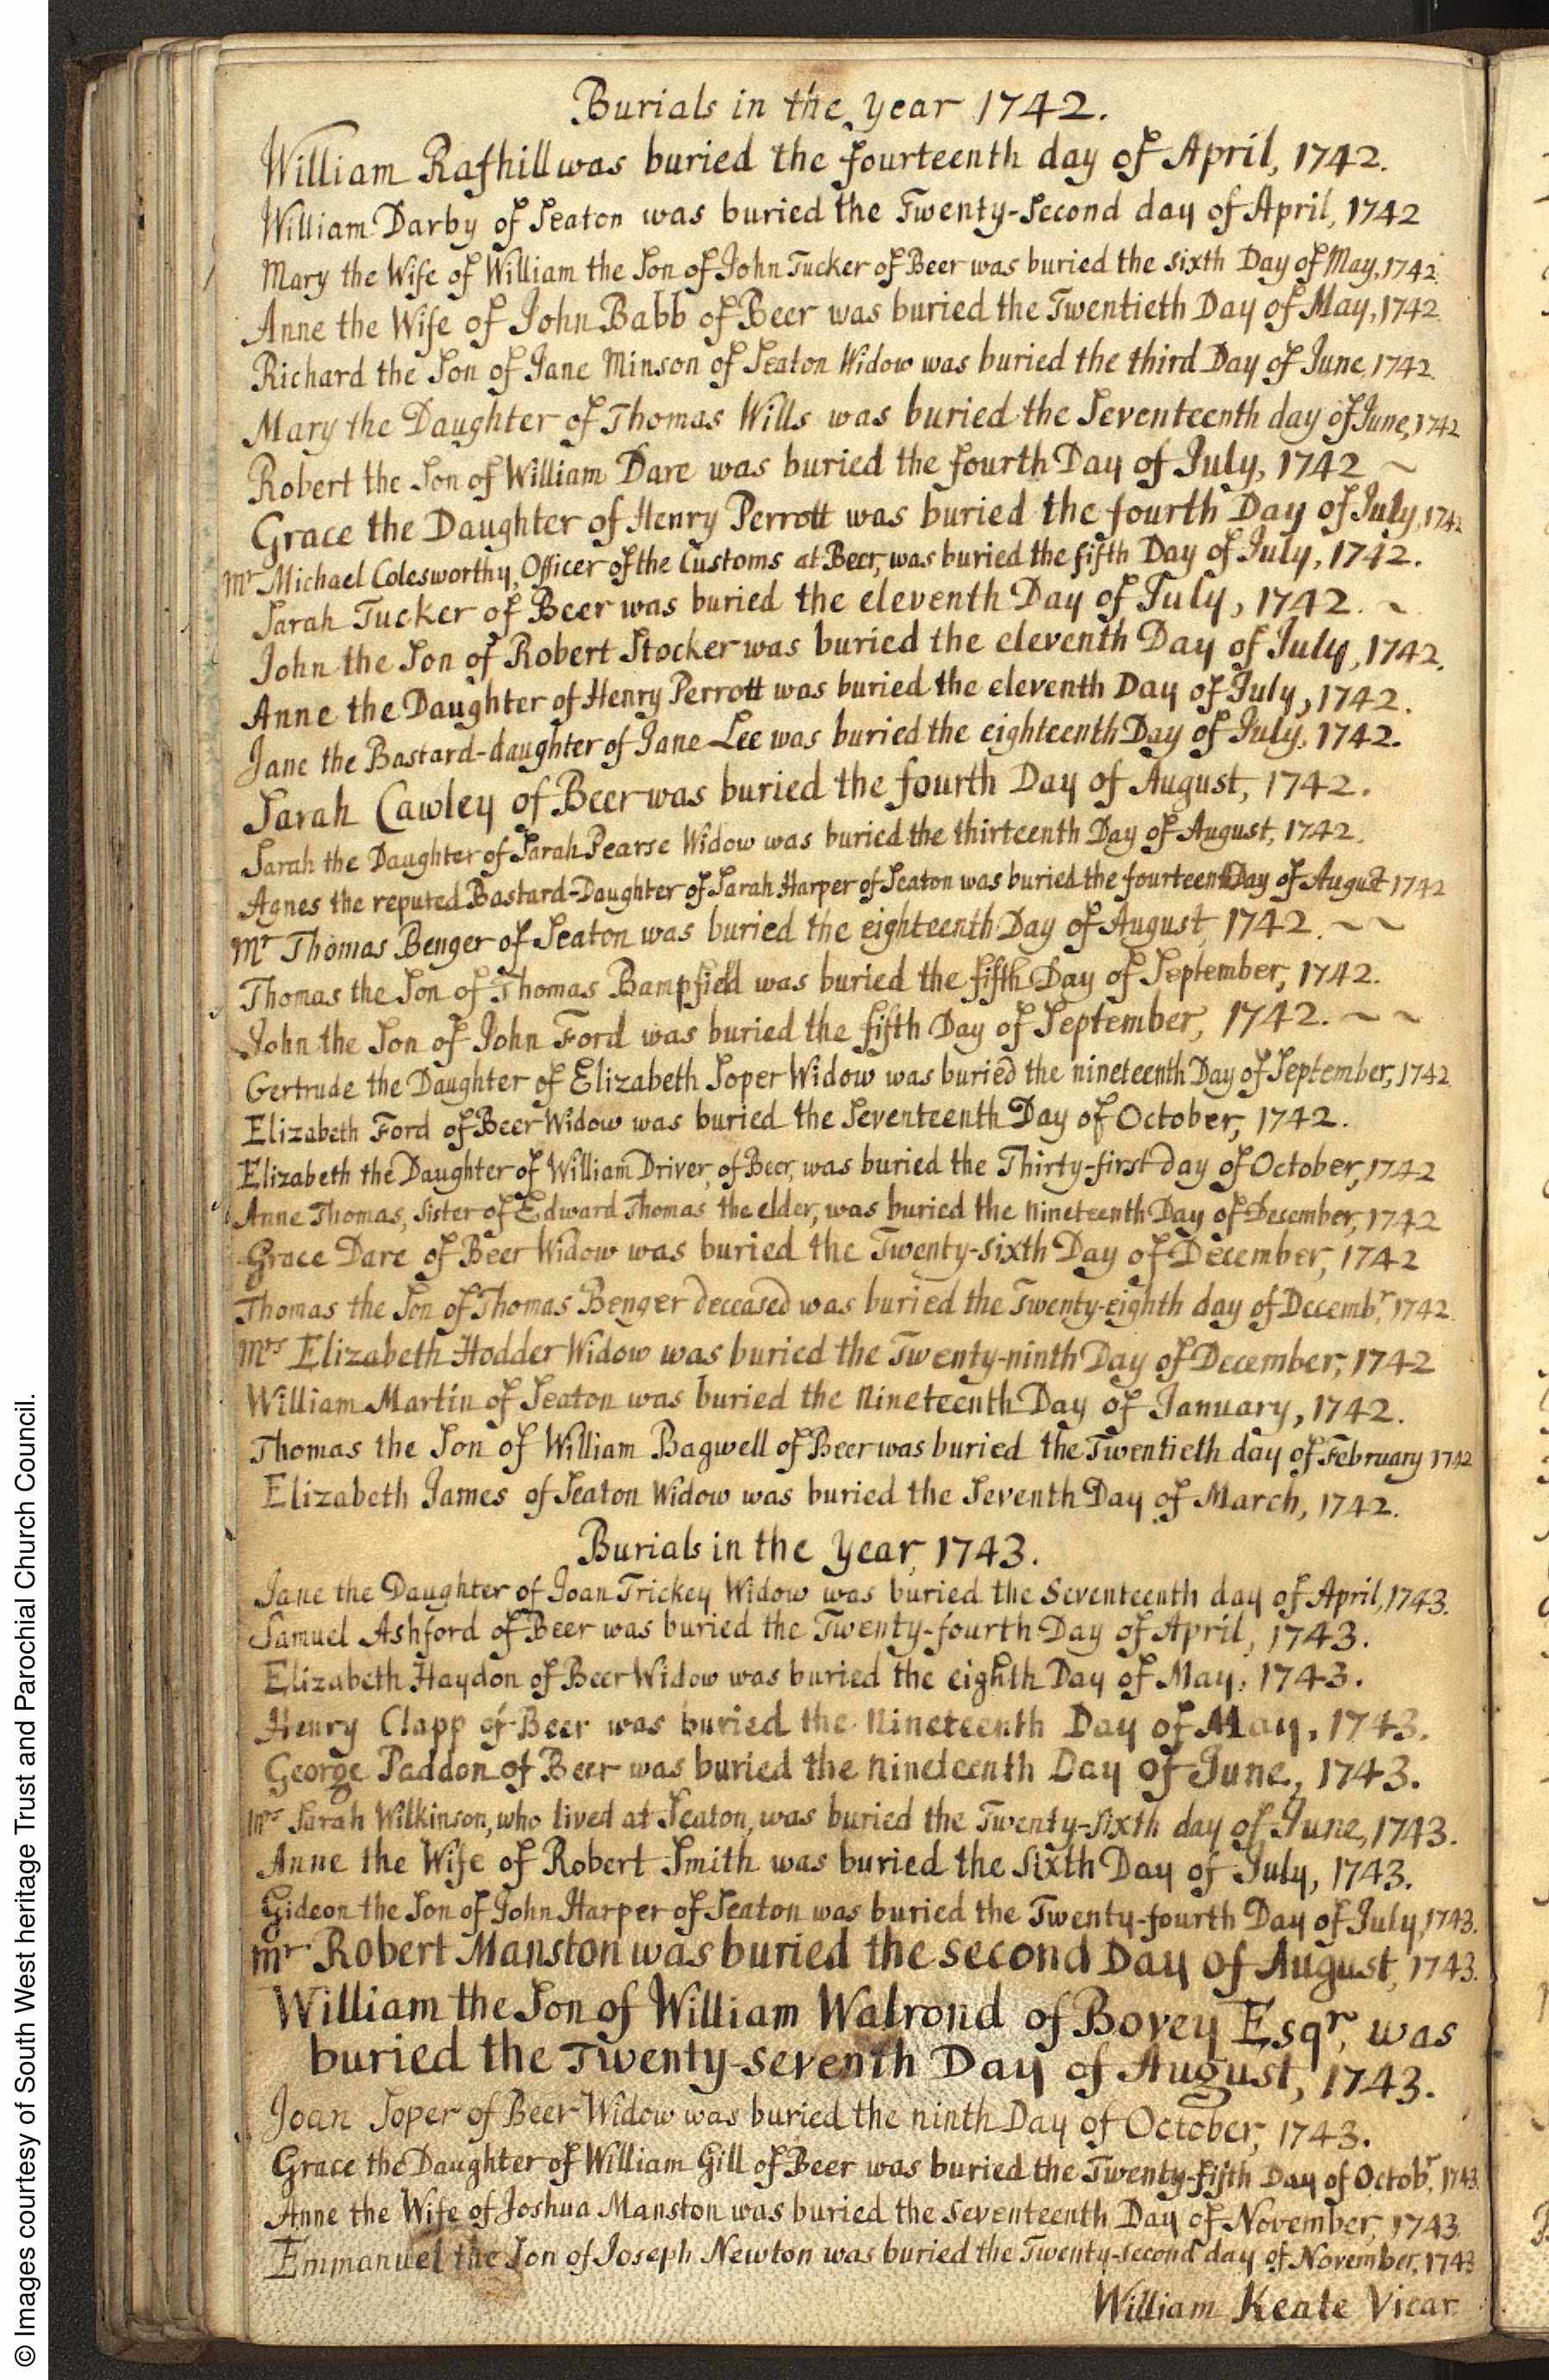 Burials in the year 1742.
William Rafhill was buried the fourteenth day of April, 1742.
William Darby of Seaton was buried the Twenty-Second day of April, 1742
Mary the Wife of William the Son of John Tucker of Beer was buried the sixth Day of May, 1742.
Anne the Wife of John Babb of Beer was buried the Twentieth Day of May, 1742.
Richard the Son of Jane Minson of Seaton Widow was buried the third Day of June, 1742.
Mary the Daughter of Thomas Wills was buried the Seventeenth day of June, 1742
Robert the Son of William Dare was buried the fourth Day of July, 1742 ~
Grace the Daughter of Henry Perrott was buried the fourth Day of July, 1742
Mr Michael Colesworthy, Officer of the Customs at Beer, was buried the fifth Day of July, 1742.
Sarah Tucker of Beer was buried the eleventh Day of July, 1742. ~
John the Son of Robert Stocker was buried the eleventh Day of July, 1742.
Anne the Daughter of Henry Perrott was buried the eleventh Day of July, 1742.
Jane the Bastard-daughter of Jane Lee was buried the eighteenth Day of July, 1742.
Sarah Cawley of Beer was buried the fourth Day of August, 1742.
Sarah the Daughter of Sarah Pearse Widow was buried the thirteenth Day of August, 1742.
Agnes the reputed Bastard-Daughter of Sarah Harper of Seaton was buried the fourteenth Day of August 1742
Mr Thomas Benger of Seaton was buried the eighteenth Day of August, 1742. ~ ~
Thomas the Son of Thomas Bampfield was buried the fifth Day of September, 1742.
John the Son of John Ford was buried the fifth Day of September, 1742. ~ ~
Gertrude the Daughter of Elizabeth Soper Widow was buried the nineteenth Day of September, 1742
Elizabeth Ford of Beer Widow was buried the Seventeenth Day of October, 1742.
Elizabeth the Daughter of William Driver, of Beer, was buried the Thirty-first day of October, 1742
Anne Thomas, Sister of Edward Thomas the elder, was buried the nineteenth Day of December, 1742
Grace Dare of Beer Widow was buried the Twenty-sixth Day of December, 1742
Thomas the Son of Thomas Benger deceased was buried the Twenty-eighth day of Decembr, 1742.
Mrs Elizabeth Hodder Widow was buried the Twenty-ninth Day of December, 1742
William Martin of Seaton was buried the nineteenth Day of January, 1742.
Thomas the Son of William Bagwell of Beer was buried the Twentieth day of February 1742
Elizabeth James of Seaton Widow was buried the Seventh Day of March, 1742.
Burials in the Year, 1743.
Jane the Daughter of Joan Trickey Widow was buried the Seventeenth day of April, 1743.
Samuel Ashford of Beer was buried the Twenty-fourth Day of April, 1743.
Elizabeth Haydon of Beer Widow was buried the eighth Day of May, 1743.
Henry Clapp of Beer was buried the nineteenth Day of May, 1743.
George Paddon of Beer was buried the nineteenth Day of June, 1743.
Mrs Sarah Wilkinson, who lived at Seaton, was buried the Twenty-sixth day of June, 1743.
Anne the Wife of Robert Smith was buried the sixth Day of July, 1743.
Gideon the Son of John Harper of Seaton was buried the Twenty-fourth Day of July, 1743.
Mr Robert Manston was buried the second Day of August, 1743.
William the Son of William Walrond of Bovey Esqr, was
buried the Twenty-seventh Day of August, 1743.
Joan Soper of Beer Widow was buried the ninth Day of October, 1743.
Grace the Daughter of William Gill of Beer was buried the Twenty-fifth Day of Octobr, 1743.
Anne the Wife of Joshua Manston was buried the seventeenth Day of November, 1743.
Emmanuel the Son of Joseph Newton was buried the Twenty-second day of November, 1743
William Keate Vicar
© Images courtesy of South West heritage Trust and Parochial Church Council.